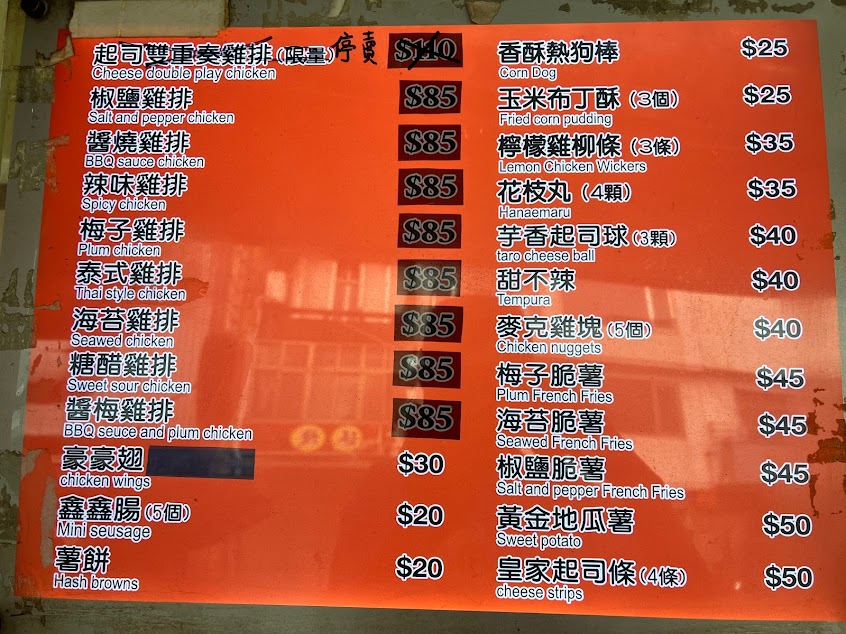 起司雙重奏雞排(限量) 停賣 $110
Cheese double play chicken
椒鹽雞排 $85
Salt and pepper chicken
醬燒雞排 $85
BBQ sauce chicken
辣味雞排 $85
Spicy chicken
梅子雞排 $85
Plum chicken
泰式雞排 $85
Thai style chicken
海苔雞排 $85
Seawed chicken
糖醋雞排 $85
Sweet sour chicken
醬梅雞排 $85
BBQ seuce and plum chicken
豪豪翅 $30
chicken wings
鑫鑫腸(5個) $20
Mini seusage
薯餅 $20
Hash browns
香酥熱狗棒 $25
Corn Dog
玉米布丁酥(3個) $25
Fried corn pudding
檸檬雞柳條(3條) $35
Lemon Chicken Wickers
花枝丸(4顆) $35
Hanaemaru
芋香起司球(3顆) $40
taro cheese ball
甜不辣 $40
Tempura
麥克雞塊(5個) $40
Chicken nuggets
梅子脆薯 $45
Plum French Fries
海苔脆薯 $45
Seawed French Fries
椒鹽脆薯 $45
Salt and pepper French Fries
黃金地瓜薯 $50
Sweet potato
皇家起司條(4條) $50
cheese strips